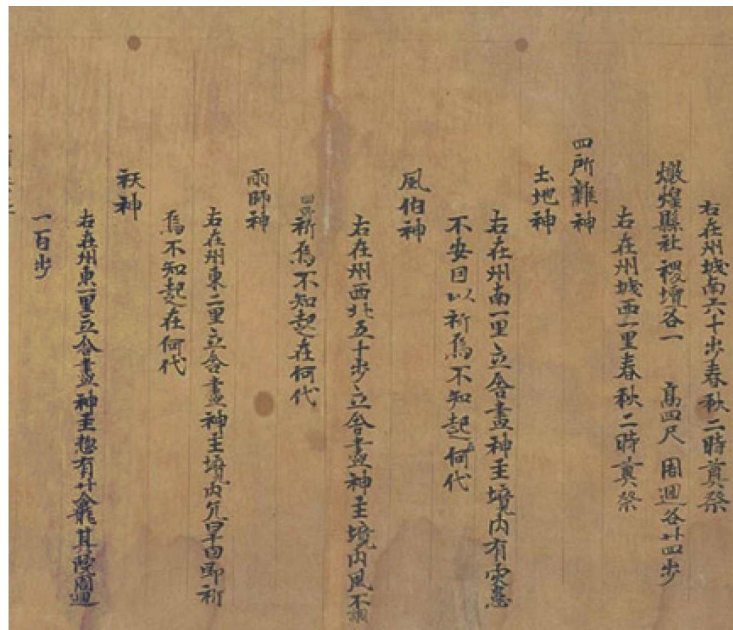 右在州城南六十步春秋二時奠祭
燉煌縣社稷壇各一 高四尺 周迴各廿四步
右在州城西一里春秋二時奠祭
四所雜神
土地神
右在州南一里立舍畫神主境內有灾患
不安因以祈焉不知起何代
風伯神
右在州西北五十步立舍畫神主境內風不
祈焉不知起在何代
雨師神
右在州東二里立舍畫神主境內亢旱因即祈
焉不知起在何代
祆神
右在州東一里立舍畫神主惣有廿龕其院周迴
一百步